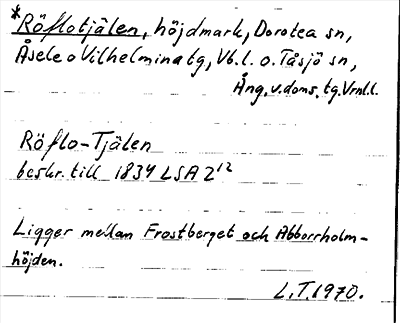 *Röflotjälen, höjdmark, Dorotea sn,
Åsele o Vilhelmina tg, Vb. l. o. Tåsjö sn,
Ång. v. doms. tg. Vrnl. l.
Röflo-Tjälen
beskr. till 1834 LSA Z¹²
Ligger mellan Frostberget och Abborrholm-
höjden.
L.T. 1970.